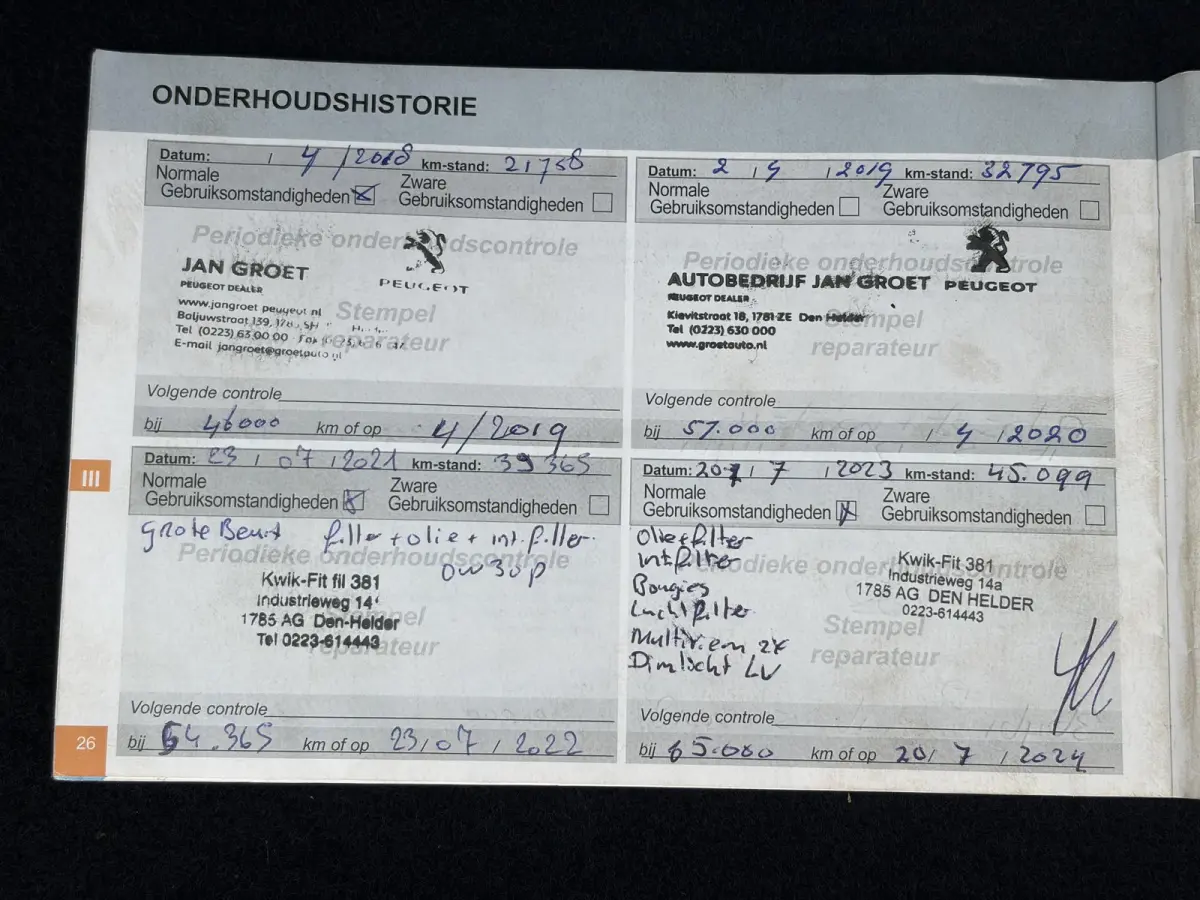 ONDERHOUDSHISTORIE
Datum: / 4 / 2018 km-stand: 21758
Normale Gebruiksomstandigheden
Zware Gebruiksomstandigheden
Periodieke onderhoudscontrole
JAN GROET
PEUGEOT DEALER
PEUGEOT
www.jangroet peugeot nl
Baljuwstraat 139,
Tel (0223) 63 00 00
E-mail jangroet@groetauto nl
Stempel
reparateur
Volgende controle
bij 46000 km of op 4/2019
Datum: 2 / 4 / 2019 km-stand: 32795
Normale Gebruiksomstandigheden
Zware Gebruiksomstandigheden
Periodieke onderhoudscontrole
AUTOBEDRIJF JAN GROET PEUGEOT
PEUGEOT DEALER
Kievitstraat 18, 1781 ZE Den Helder
Tel (0223) 630 000
www.groetauto.nl
Stempel
reparateur
Volgende controle
bij 57.000 km of op / 4 / 2020
III
Datum: 23 / 07 / 2021 km-stand: 39365
Normale Gebruiksomstandigheden
Zware Gebruiksomstandigheden
grote Beurt filter + olie + int. filter.
0w30p
Periodieke onderhoudscontrole
Kwik-Fit fil 381
Industrieweg 14
1785 AG Den-Helder
Tel 0223-614443
Stempel
reparateur
Volgende controle
bij 54.365 km of op 23/07/2022
Datum: 20 / 7 / 2023 km-stand: 45.099
Normale Gebruiksomstandigheden
Zware Gebruiksomstandigheden
Olie+filter
int.filter
Bougies
Luchtfilter
Multiriem 2x
Dimlicht LV
Periodieke onderhoudscontrole
Kwik-Fit 381
Industrieweg 14a
1785 AG DEN HELDER
0223-614443
Stempel
reparateur
Volgende controle
bij 65.000 km of op 20/ 7 / 2024
26